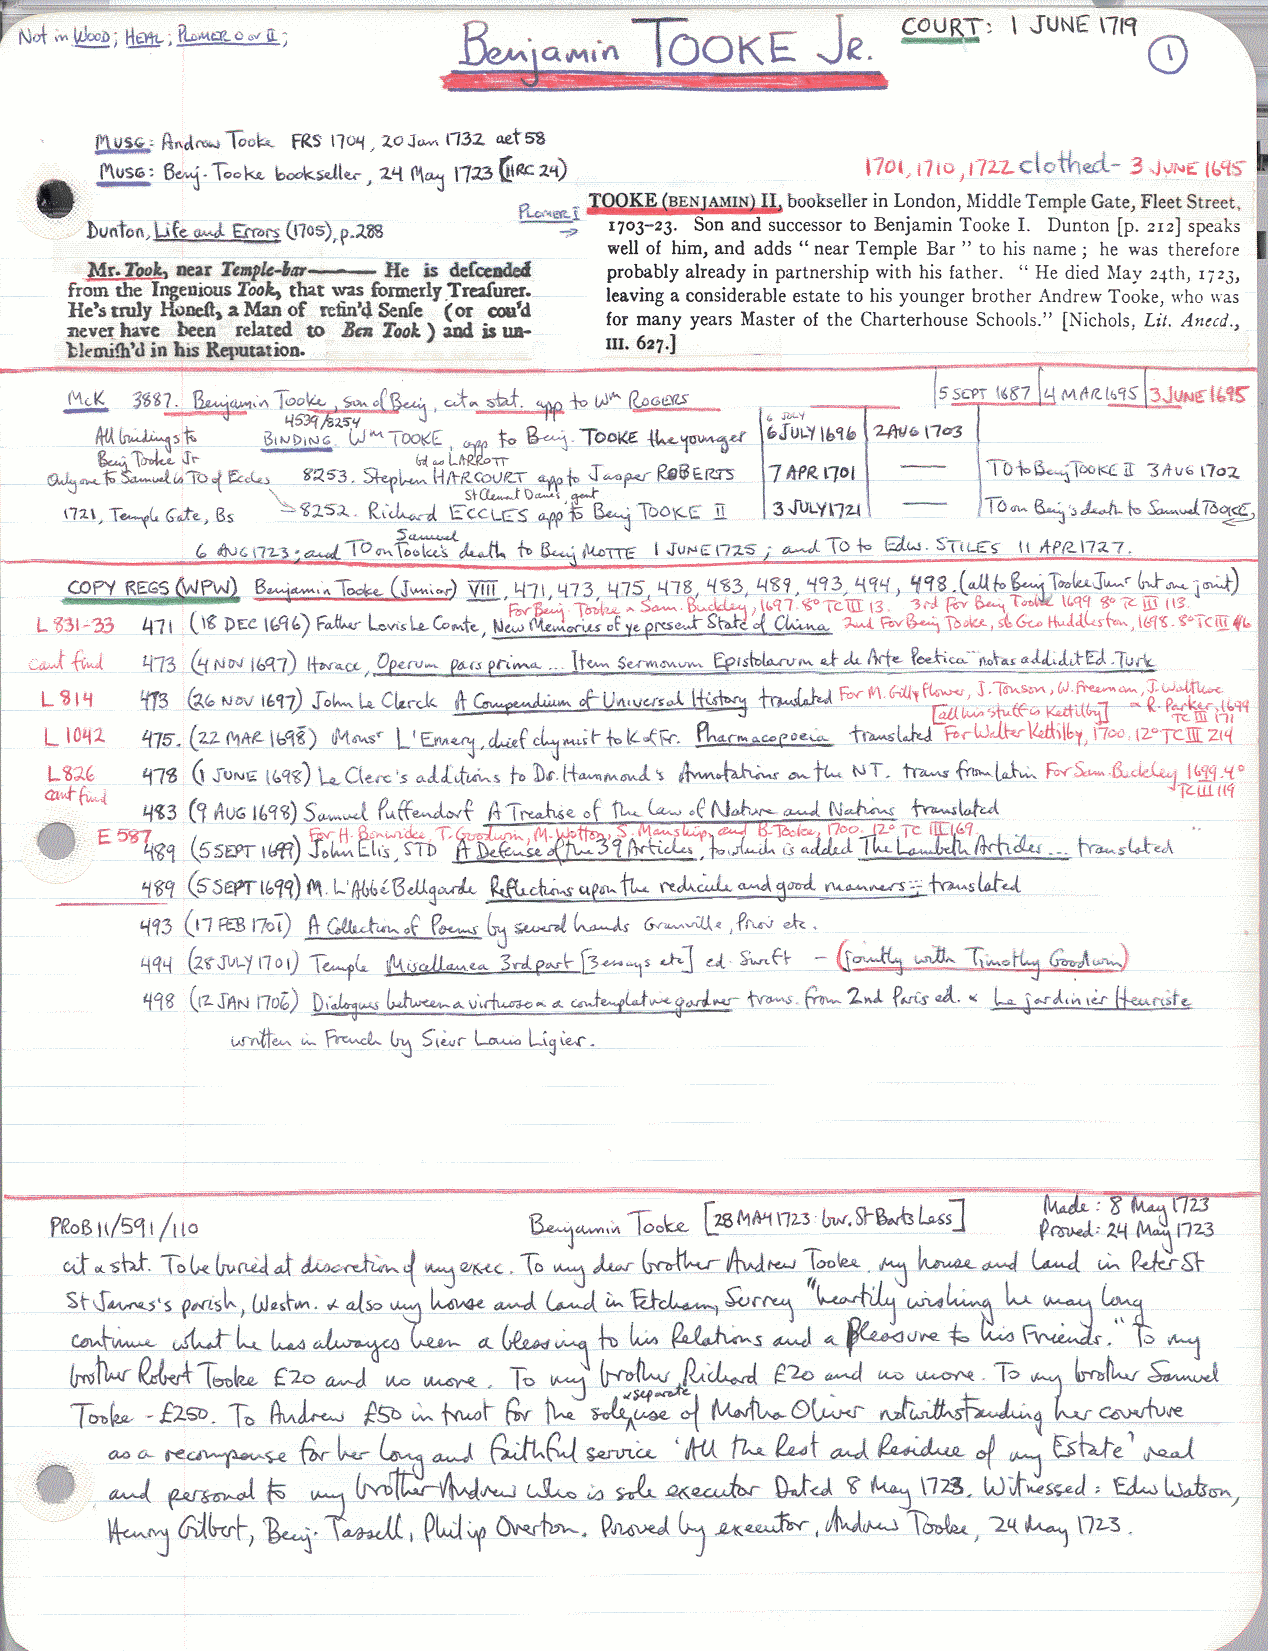 Not in WOOD; HEAL; PLOMER O or II;
Benjamin TOOKE Jr.
COURT: 1 JUNE 1719
1
MUSG: Andrew Tooke FRS 1704, 20 Jan 1732 aet 58
MUSG: Benj. Tooke bookseller, 24 May 1723 (HRC 24)
1701, 1710, 1722 clothed - 3 JUNE 1695
Dunton, Life and Errors (1705), p.288
Mr. Took, near Temple-bar—— He is descended
from the Ingenious Took, that was formerly Treasurer.
He's truly Honest, a Man of refin'd Sense (or cou'd
never have been related to Ben Took) and is un-
blemish'd in his Reputation.
PLOMER I →
TOOKE (BENJAMIN) II, bookseller in London, Middle Temple Gate, Fleet Street,
1703–23. Son and successor to Benjamin Tooke I. Dunton [p. 212] speaks
well of him, and adds “near Temple Bar” to his name; he was therefore
probably already in partnership with his father. “He died May 24th, 1723,
leaving a considerable estate to his younger brother Andrew Tooke, who was
for many years Master of the Charterhouse Schools.” [Nichols, Lit. Anecd.,
III. 627.]
McK 3887. Benjamin Tooke, son of Benj, cit & stat. app to Wm ROGERS 5 SEPT 1687 4 MAR 1695 3 JUNE 1695
4539/8254 6 JULY
All bindings to BINDING. Wm TOOKE, app to Benj. TOOKE the younger 6 JULY 1696 2 AUG 1703
Benj Tooke Jr bd as LARROTT
Only one to Samuel is TO of Eccles 8253. Stephen HARCOURT app to Jasper ROBERTS 7 APR 1701 — TO to Benj TOOKE II 3 AUG 1702
St Clement Danes, gent
1721, Temple Gate, Bs 8252. Richard ECCLES app to Benj TOOKE II 3 JULY 1721 — TO on Benj's death to Samuel TOOKE,
Samuel
6 AUG 1723; and TO on Tooke's death to Benj MOTTE 1 JUNE 1725; and TO to Edw. STILES 11 APR 1727.
COPY REGS (WPW) Benjamin Tooke (Junior) VIII, 471, 473, 475, 478, 483, 489, 493, 494, 498. (all to Benj Tooke Junr but one joint)
For Benj. Tooke & Sam. Buckley, 1697. 8° TC III 13. 3rd for Benj Tooke 1699 8° TC III 113.
L 831-33 471 (18 DEC 1696) Father Lovis Le Comte, New Memories of ye present State of China 2nd For Benj Tooke, sb Geo Huddleston, 1698. 8° TC III 46
cant find 473 (4 NOV 1697) Horace, Operum pars prima ... Item Sermonum Epistolarum et de Arte Poetica notas addidit Ed. Turk
L 814 473 (26 NOV 1697) John Le Clerck A Compendium of Universal History translated For M. Gillyflower, J. Tonson, W. Freeman, J. Walthoe
[all his stuff is Kettilby] & R. Parker, 1699 TC III 171
L 1042 475. (22 MAR 1698) Monsr L'Emery, chief chymist to K of Fr. Pharmacopoeia translated For Walter Kettilby, 1700. 12° TC III 214
L 826 478 (1 JUNE 1698) Le Clerc's additions to Dr. Hammond's Annotations on the NT. trans from latin For Sam. Buckley 1699. 4° TC III 119
cant find 483 (9 AUG 1698) Samuel Puffendorf A Treatise of the Law of Nature and Nations translated
For H. Bonwicke, T. Goodwin, M. Wotton, S. Manship, and B. Tooke, 1700. 12° TC III 169.
E 587 489 (5 SEPT 1699) John Elis, STD A Defense of the 39 Articles, to which is added The Lambeth Articles ... translated
489 (5 SEPT 1699) M. L'Abbé Bellgarde Reflections upon the redicule and good manners translated
493 (17 FEB 1701) A Collection of Poems by several hands Granville, Prior etc.
494 (28 JULY 1701) Temple Miscellanea 3rd part [3 essays etc] ed. Swift - (jointly with Timothy Goodwin)
498 (12 JAN 1706) Dialogues between a virtuoso & a contemplative gardner trans. from 2nd Paris ed. & Le jardinier Heuriste
written in French by Sieur Louis Ligier.
PROB 11/591/110 Benjamin Tooke [28 MAY 1723: bur. St Barts Less] Made: 8 May 1723
Proved: 24 May 1723
cit & stat. To be buried at discretion of my exec. To my dear brother Andrew Tooke my house and land in Peter St
St James's parish, Westm. & also my house and land in Fetcham, Surrey "heartily wishing he may long
continue what he has alwayes been a blessing to his Relations and a Pleasure to his Friends." To my
brother Robert Tooke £20 and no more. To my brother Richard £20 and no more. To my brother Samuel
& separate
Tooke - £250. To Andrew £50 in trust for the sole use of Martha Oliver notwithstanding her coverture
as a recompense for her long and faithful service 'All the Rest and Residue of my Estate' real
and personal to my brother Andrew who is sole executor Dated 8 May 1723. Witnessed: Edw Watson,
Henry Gilbert, Benj. Tassell, Philip Overton. Proved by executor, Andrew Tooke, 24 May 1723.